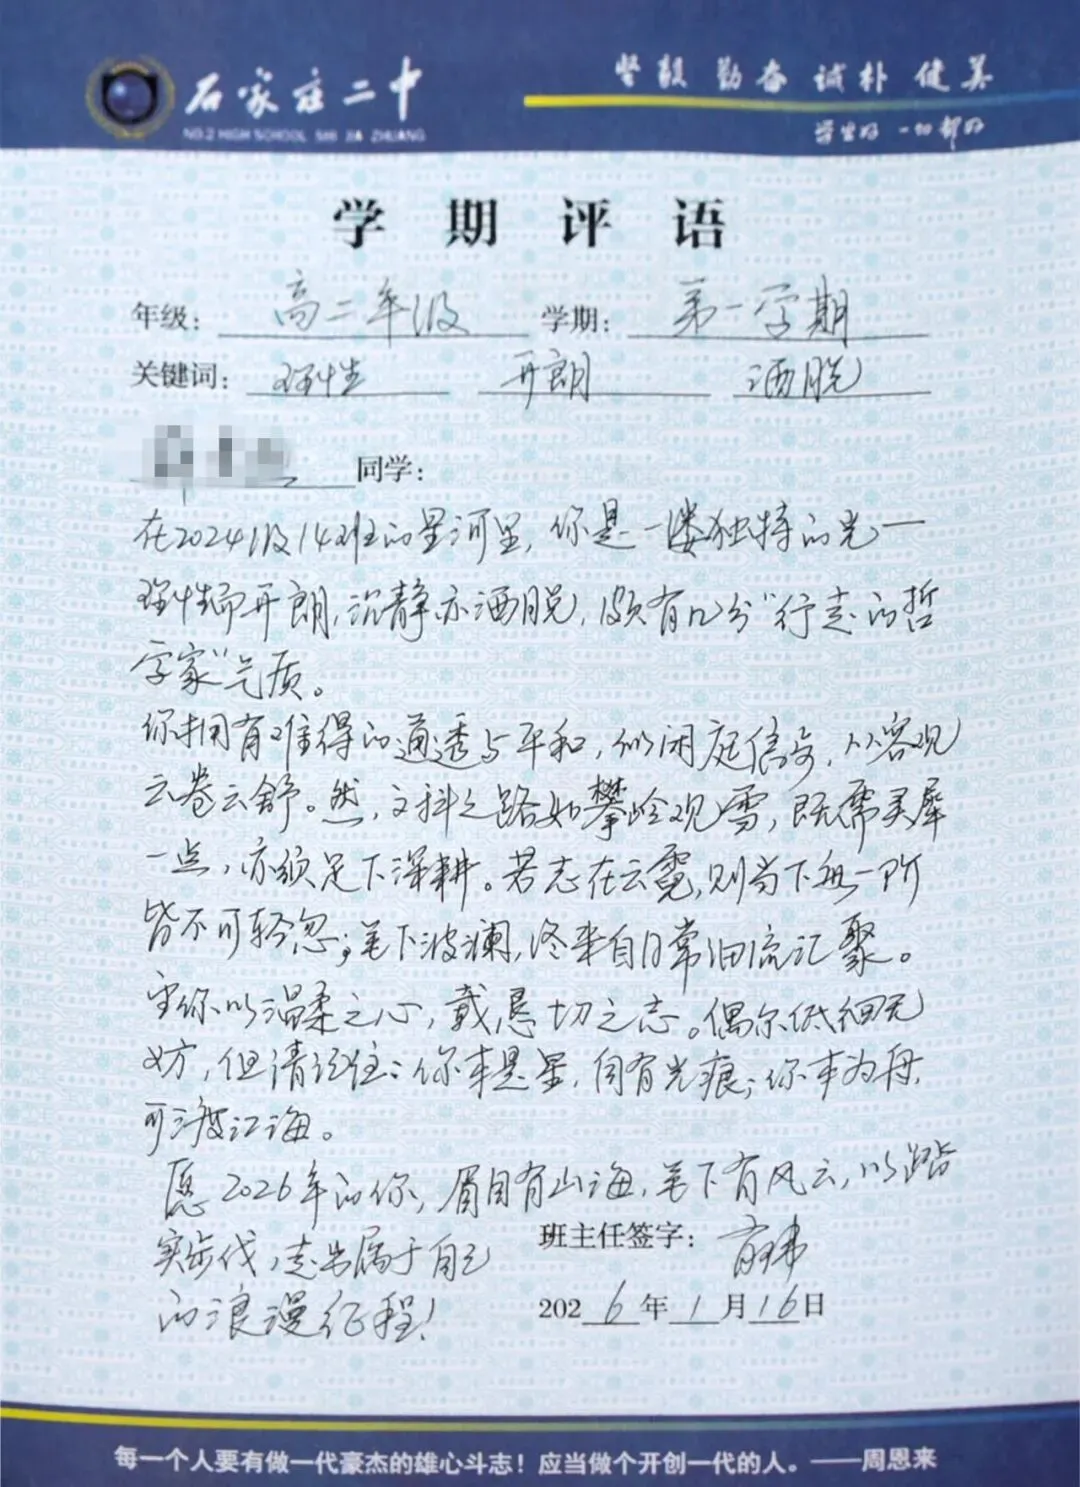 石家庄二中
NO.2 HIGH SCHOOL SHI JIA ZHUANG
坚毅 勤奋 诚朴 健美
学生好 一切都好
学期评语
年级：高二年级 学期：第一学期
关键词：理性 开朗 洒脱
同学：
在2024级14班的星河里，你是一缕独特的光——
理性而开朗，沉静亦洒脱，颇有几分“行走的哲
学家”气质。
你拥有难得的通透与平和，似闲庭信步，从容观
云卷云舒。然，文科之路如攀岭观雪，既需灵犀
一点，亦须足下深耕。若志在云霓，则当下每一阶
皆不可轻忽；笔下波澜，终来自日常细流汇聚。
守你以温柔之心，载恳切之志。偶尔低徊无
妨，但请记住：你本是星，自有光痕；你本为舟，
可渡江海。
愿2026年的你，眉目有山海，笔下有风云，以踏
实步伐，走出属于自己
的浪漫征程！
班主任签字：
2026年1月16日
每一个人要有做一代豪杰的雄心斗志！应当做个开创一代的人。——周恩来